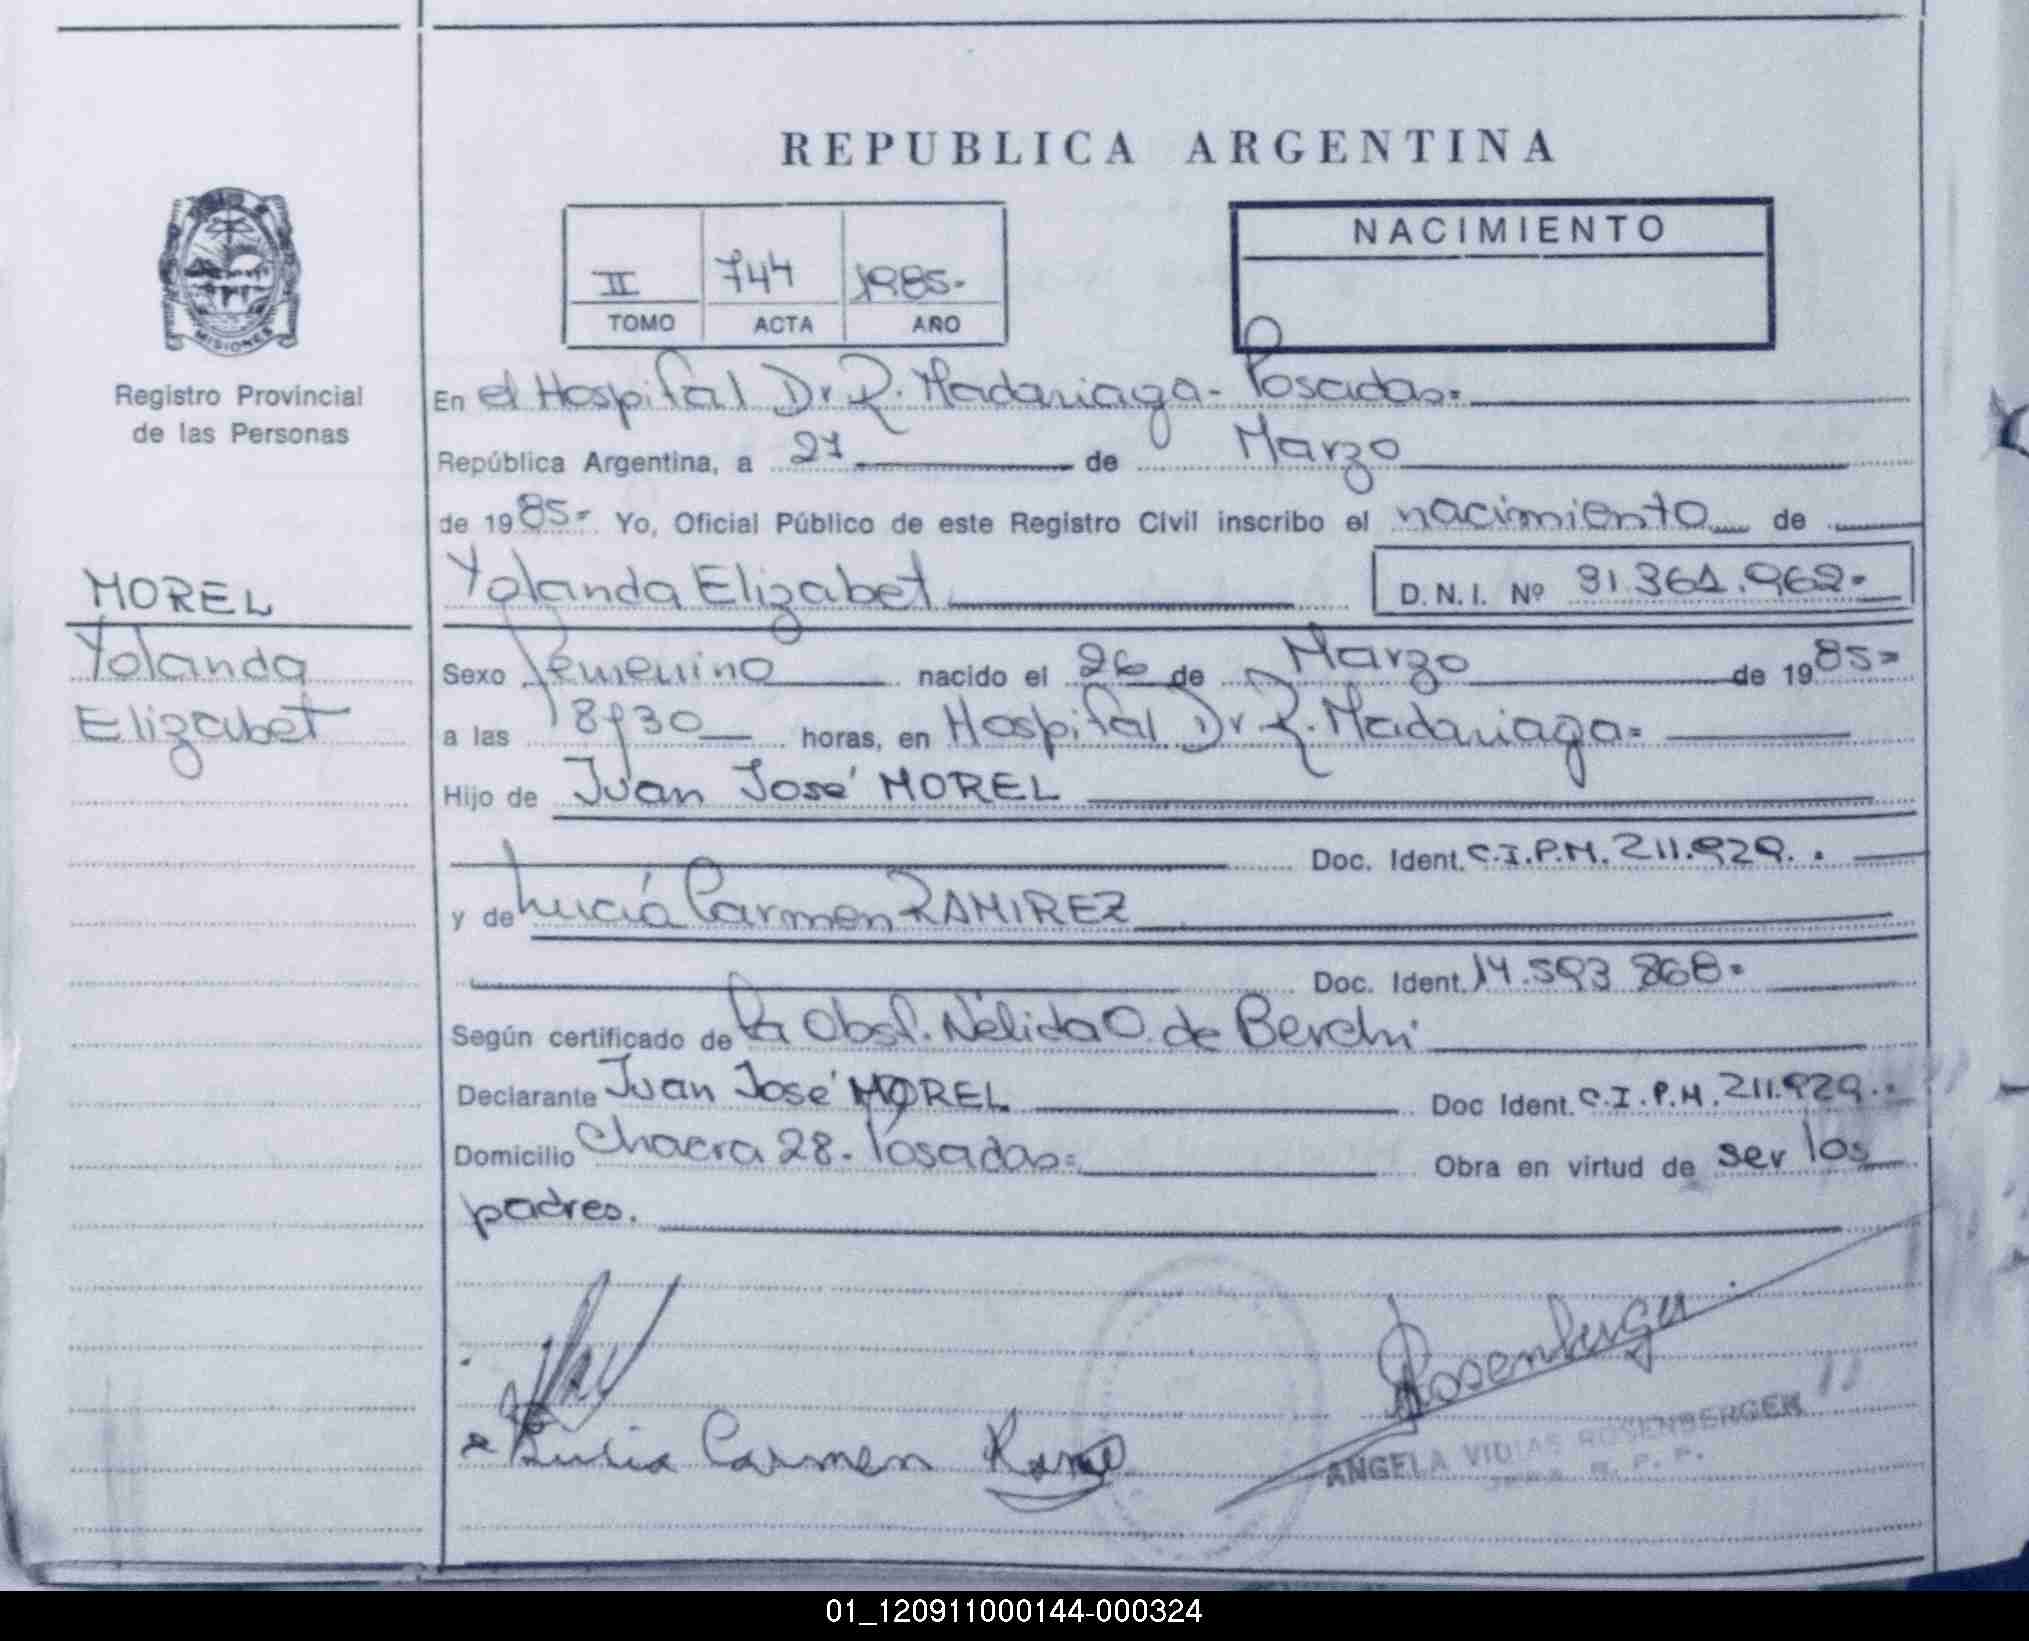 REPUBLICA ARGENTINA
II 744 1985-
TOMO ACTA AÑO
NACIMIENTO
MISIONES
Registro Provincial
de las Personas
En el Hospital Dr R. Madariaga- Posadas=
República Argentina, a 27 de Marzo
de 1985= Yo, Oficial Público de este Registro Civil inscribo el nacimiento de
MOREL
Yolanda
Elizabet
Yolanda Elizabet
D.N.I. Nº 31.361.962-
Sexo Femenino nacido el 26 de Marzo de 1985=
a las 8y30 horas, en Hospital Dr R. Madariaga=
Hijo de Juan José MOREL
Doc. Ident. C.I.P.M. 211.929.
y de Lucia Carmen RAMIREZ
Doc. Ident. 14.593 868=
Según certificado de la Obst. Nélida O. de Berchi
Declarante Juan José MOREL Doc Ident. C.I.P.M. 211.929..
Domicilio Chacra 28- Posadas= Obra en virtud de ser los
padres.
Rosenberger
Carmen
ANGELA ROSENBERGER
01_120911000144-000324